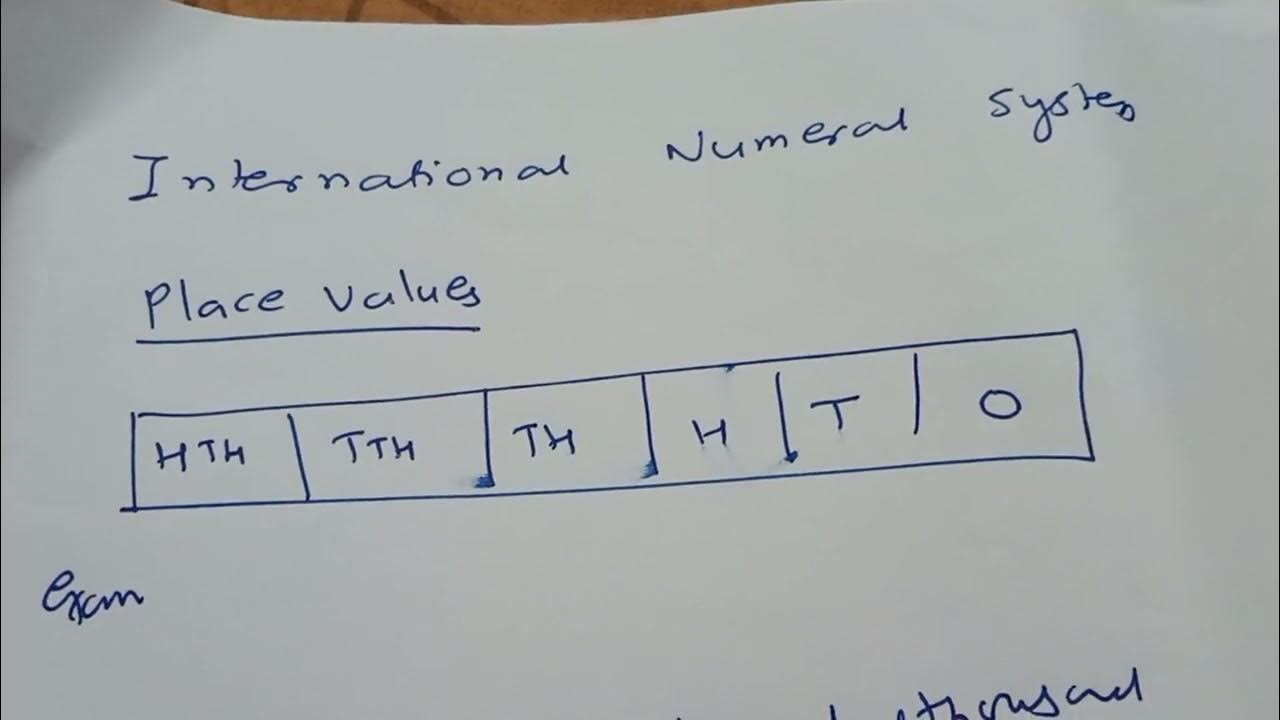 International Numeral System
Place Values
HTH TTH TH H T O
Exam
thousand